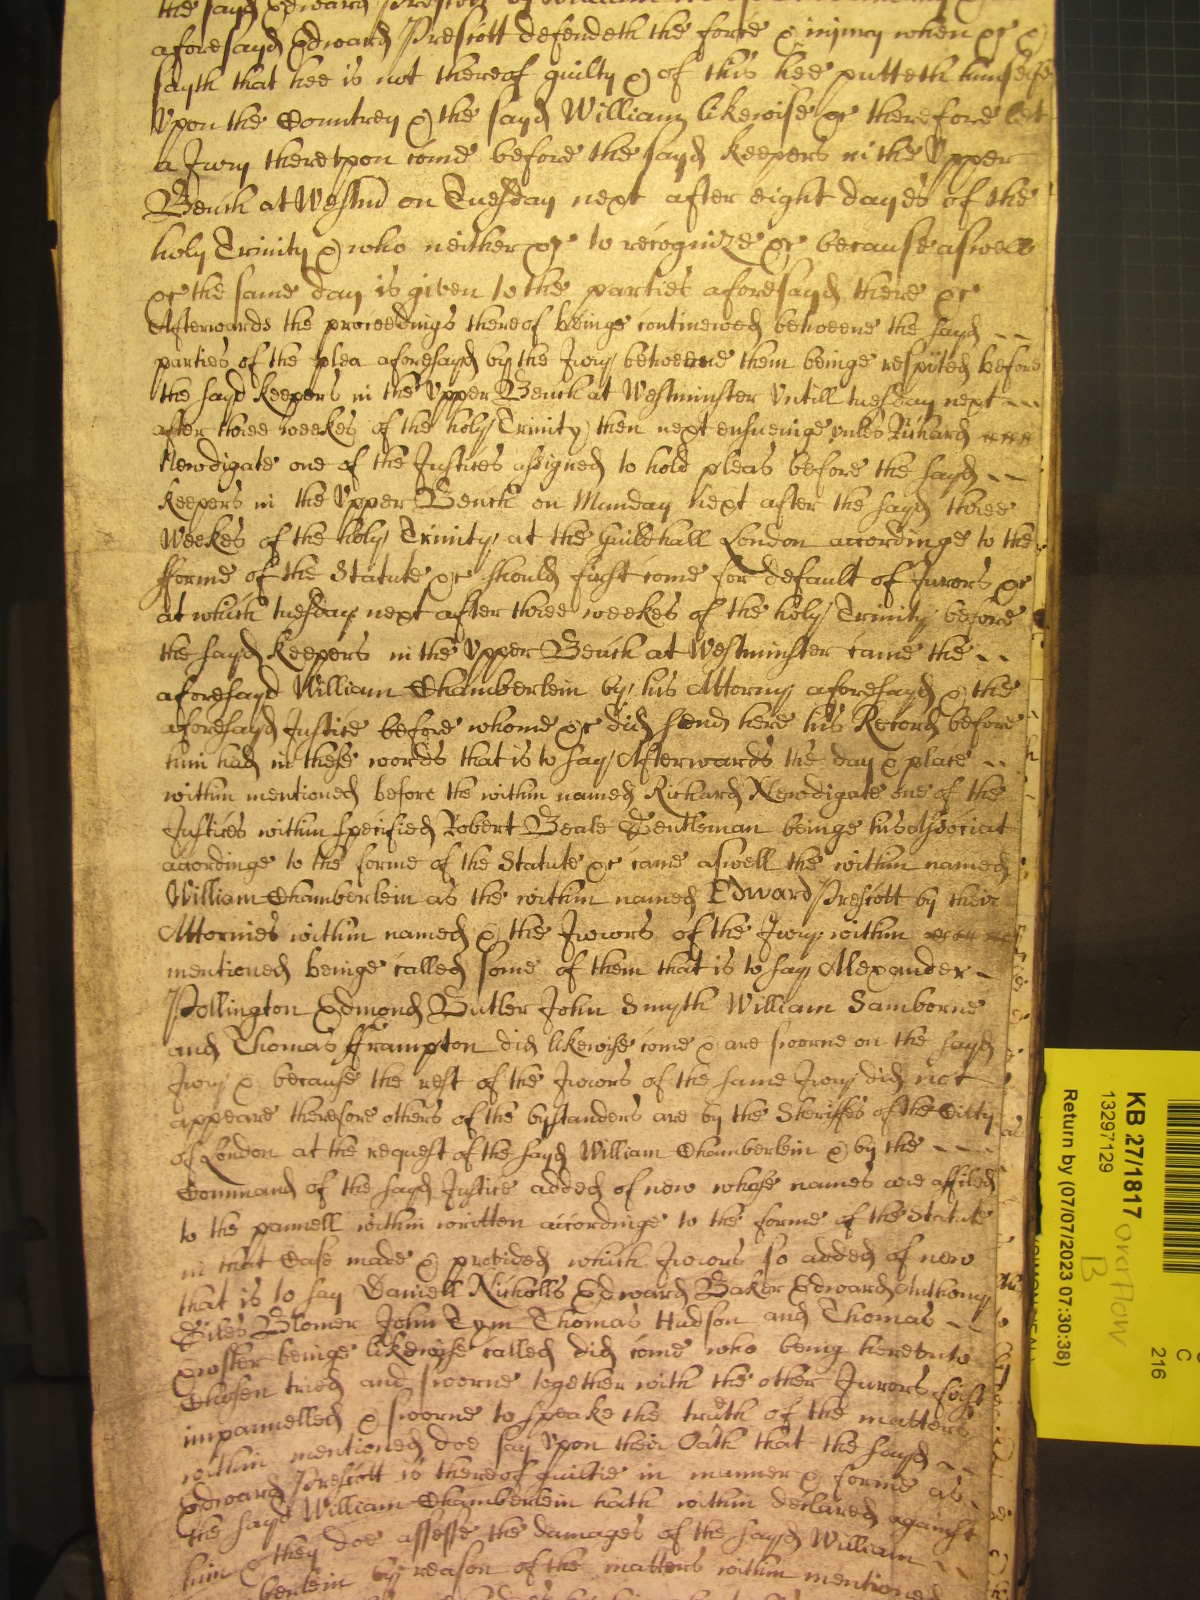 the sayd Edward Prescott by William
aforesayd Edward Prescott defendeth the force & injury when &c &
sayth that hee is not thereof guilty & of this hee putteth himselfe
Vpon the Countrey & the sayd William likewise &c therefore let
a Jury therevpon come before the sayd keepers in the Vpper
Bench at Westm on Tuesday next after eight dayes of the
holy Trinity & who neither &c to recognize &c because aswell
&c the same day is given to the parties aforesayd there &c
Afterwards the proceedings thereof beinge continewed betweene the sayd --
parties of the plea aforesayd by the Jury betweene them beinge respited before
the sayd keepers in the Vpper Bench at Westminster Vntill tuesday next ---
after three weekes of the holy Trinity then next ensueinge vnles Richard
Newdigate one of the Justices assigned to hold pleas before the sayd --
keepers in the Vpper Bench on Munday next after the sayd three
Weekes of the holy Trinity at the Guildhall London accordinge to the
fforme of the Statute &c should first come for default of Jurors &c
at which tuesday next after three weekes of the holy Trinity before
the sayd keepers in the Vpper Bench at Westminster came the --
aforesayd William Chamberlein by his Attorny aforesayd & the
aforesayd Justice before whome &c did send here his Record before
him had in these words that is to say Afterwards the day & place --
within mentioned before the within named Richard Newdigate one of the
Justices within specified Robert Beale Gentleman beinge his associat
accordinge to the forme of the Statute &c came aswell the within named
William Chamberlein as the within named Edward Prescott by their
Attornies within named & the Jurors of the Jury within
mentioned beinge called some of them that is to say Alexander -
Pollington Edmond Butler John Smyth William Samborne
and Thomas fframpton did likewise come & are sworne on the sayd
Jury & because the rest of the Jurors of the same Jury did not
appeare therefore others of the bystanders are by the Sheriffes of the Citty
of London at the request of the sayd William Chamberlein & by the ---
Command of the sayd Justice added of new whose names are affiled
to the pannell within written accordinge to the forme of the Statute
in that Case made & provided which Jurors so added of new
that is to say Daniell Nicholls Edward Baker Edward Anthony
Giles Blomer John Tym Thomas Hudson and Thomas --
beinge likewise called did come who being herevnto
Chosen tried and sworne together with the other Jurors first
impannelled & sworne to speake the truth of the matters
within mentioned doe say Vpon their Oath that the sayd --
Edward Prescott is thereof guiltie in manner & forme as
the sayd William Chamberlein hath within declared against
him & they doe assesse the damages of the sayd William -
berlein by reason of the matters within mentioned
KB 27/1817
13297129
Return by (07/07/2023 07:30:38)
overflow
B
C
216